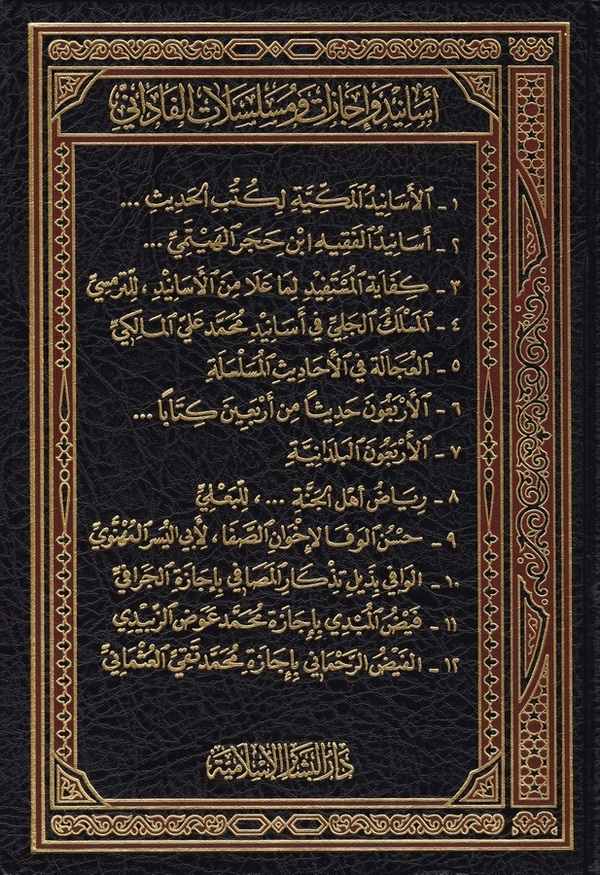 أسانيد وإجازات ومسلسلات الفاداني
١ - الأَسَانِيدُ المَكِّيَّة لِكُتُبِ الحَدِيثِ ...
٢ - أَسَانِيدُ الفَقِيهِ ابْنِ حَجَرٍ الهَيْتَمِيِّ ...
٣ - كِفَايَة المُسْتَفِيْدِ لِمَا عَلَا مِنَ الأَسَانِيْدِ ، لِلتَّرْمَسِيِّ
٤ - المَسْلَكُ الجَلِيُّ فِي أَسَانِيْدِ مُحَمَّد عَلِيّ المَالِكِيِّ
٥ - العُجَالَة فِي الأَحَادِيثِ المُسَلْسَلَةِ
٦ - الأَرْبَعُونَ حَدِيثاً مِن أَرْبَعِينَ كِتَاباً ...
٧ - الأَرْبَعُونَ البُلْدَانِيَّة
٨ - رِيَاضُ أَهْلِ الجَنَّةِ ... ، لِلبَعْلِيِّ
٩ - حُسْنُ الوَفَا لِإِخْوَانِ الصَّفَا ، لِأَبِي اليُسْرِ
١٠ - الوَافِي بِذَيْلِ تِذْكَارِ المَصَافِي بِإِجَازَةِ الجَرَافِيِّ
١١ - فَيْضُ المُبْدِي بِإِجَازَة مُحَمَّد عَوَض الزَّبِيدِي
١٢ - الفَيْضُ الرَّحْمَانِي بِإِجَازَة مُحَمَّد تَقِيّ العُثْمَانِيِّ
دار البشائر الإسلامية